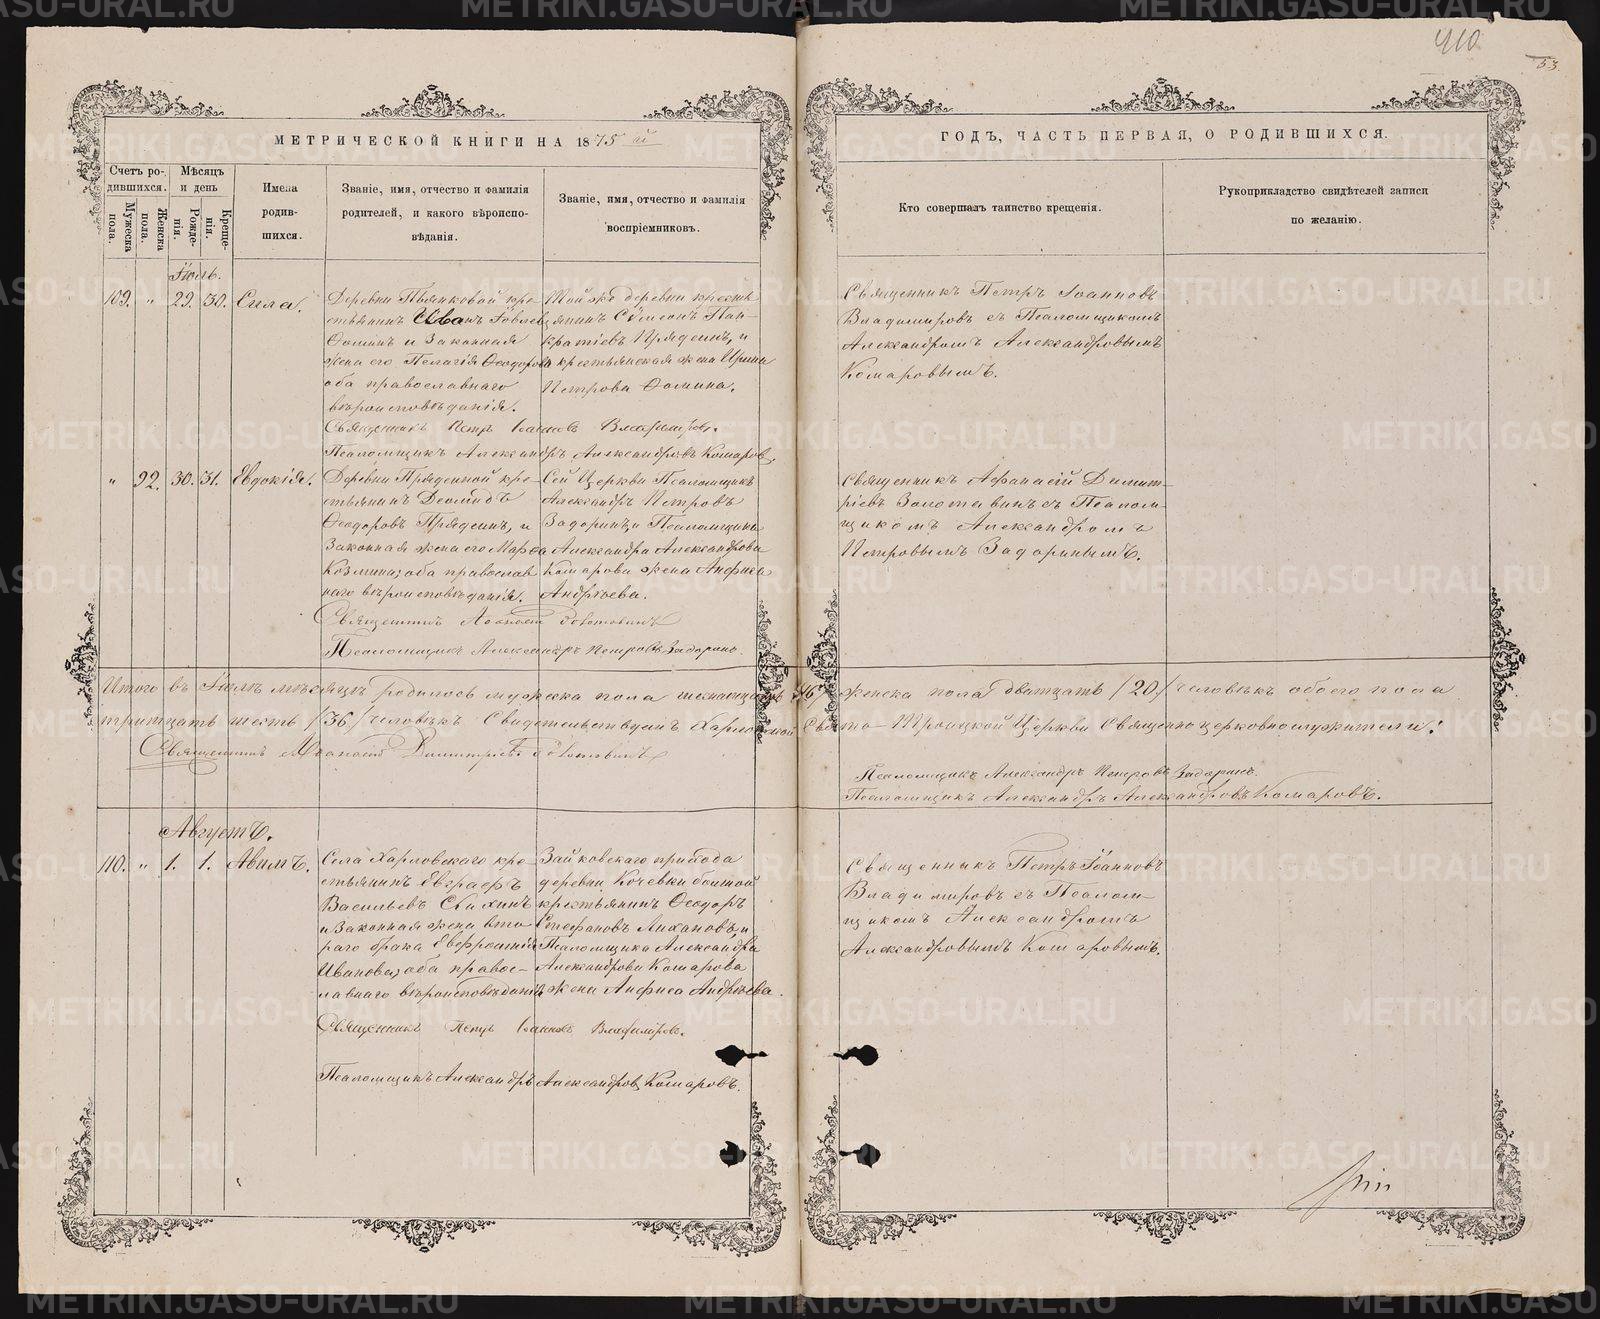 410
53.
МЕТРИЧЕСКОЙ КНИГИ НА 1875 ый
ГОДЪ, ЧАСТЬ ПЕРВАЯ, О РОДИВШИХСЯ.
Счетъ родившихся.
Мужеска пола.
Женска пола.
Мѣсяцъ и день
Рожденія.
Крещенія.
Имена родившихся.
Званіе, имя, отчество и фамилія
родителей, и какого вѣроиспо-
вѣданія.
Званіе, имя, отчество и фамилія
воспріемниковъ.
Кто совершалъ таинство крещенія.
Рукоприкладство свидѣтелей записи
по желанію.
Іюль.
109. " 29. 30. Сила.
Деревни Пьянковой кре-
стьянинъ Иванъ Іовлевъ
Ѳоминъ и законная
жена его Пелагія Ѳеодорова
оба православнаго
вѣроисповѣданія.
Той же деревни кресть
янинъ Сѵмеонъ Пан-
кратіевъ Прядеинъ, и
крестьянская жена Ирина
Петрова Ѳомина.
Священникъ Петръ Іоанновъ
Владимировъ съ Псаломщикомъ
Александромъ Александровымъ
Комаровымъ.
Священникъ Петръ Іоанновъ Владиміровъ.
Псаломщикъ Александръ Александровъ Комаровъ.
" 92. 30. 31. Евдокія.
Деревни Прядеиной кре-
стьянинъ Діомидъ
Ѳеодоровъ Прядеинъ, и
законная жена его Марѳа
Козмина; оба православ
наго вѣроисповѣданія.
Сей Церкви Псаломщикъ
Александръ Петровъ
Задоринъ, и Псаломщика
Александра Александрова
Комарова жена Анфиса
Андреева.
Священникъ Афанасій Димит-
ріевъ Золотавинъ съ Псалом-
щикомъ Александромъ
Петровымъ Задоринымъ.
Священникъ Афанасій Золотавинъ
Псаломщикъ Александръ Петровъ Задоринъ.
Итого въ Іюлѣ мѣсяцѣ родилось мужеска пола шестнадцать /16/ женска пола двадцать /20/ человѣкъ обоего пола
тритцать шесть /36/ человѣкъ. Свидѣтельствуемъ Харловской Свято-Троицкой Церкви Священноцерковнослужители:
Священникъ Афанасій Димитріевъ Золотавинъ
Псаломщикъ Александръ Петровъ Задоринъ.
Псаломщикъ Александръ Александровъ Комаровъ.
Августъ.
110. " 1. 1. Авимъ.
Села Харловскаго кре-
стьянинъ Евграфъ
Васильевъ
и законная жена вто-
раго брака Евфросинія
Иванова; оба правос-
лавнаго вѣроисповѣданія
Зайковскаго прихода
деревни Кочевки
крестьянинъ Ѳеодоръ
Стефановъ Лихановъ, и
Псаломщика Александра
Александрова Комарова
жена Анфиса Андреева.
Священникъ Петръ Іоанновъ
Владимировъ съ Псалом-
щикомъ Александромъ
Александровымъ Комаровымъ.
Священникъ Петръ Іоанновъ Владиміровъ.
Псаломщикъ Александръ Александровъ Комаровъ.
METRIKI.GASO-URAL.RU